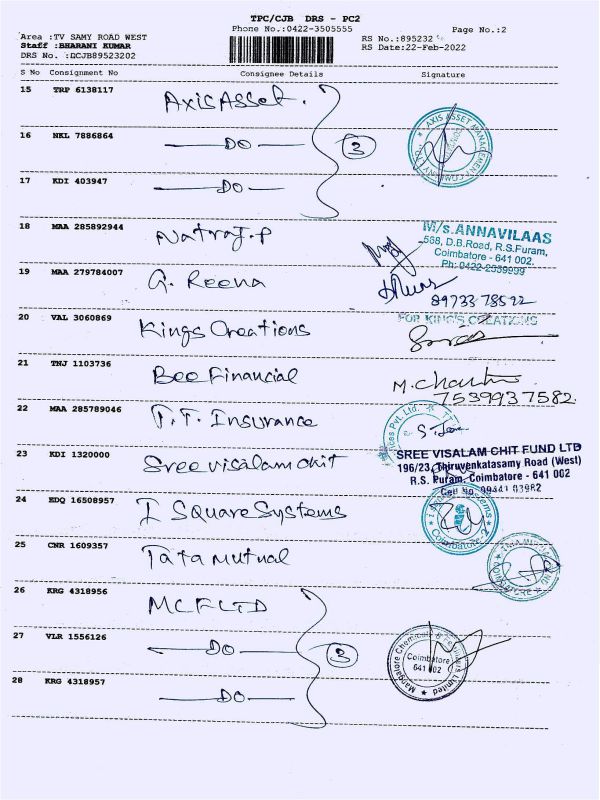 TPC/CJB DRS - PC2
Phone No.:0422-3505555
Page No.:2
Area :TV SAMY ROAD WEST
RS No.:895232
Staff :BHARANI KUMAR
RS Date:22-Feb-2022
DRS No. :DCJB89523202
S No Consignment No Consignee Details Signature
15 TRP 6138117 Axis Asset.
AXIS ASSET MANAGEMENT COMPANY LTD
16 NKL 7886864 —DO— 3
17 KDI 403947 —DO—
18 MAA 285892944 Natraj.P
M/s.ANNAVILAAS
568, D.B.Road, R.S.Puram,
Coimbatore - 641 002.
Ph: 0422-2539999
19 MAA 279784007 G. Reena
89733 78522
20 VAL 3060869 Kings Creations
FOR KING'S CREATIONS
21 TNJ 1103736 Bee Financial
M.
7539937582.
22 MAA 285789046 T.T. Insurance
Pvt. Ltd.
23 KDI 1320000 Sree visalam chit
SREE VISALAM CHIT FUND LTD
196/23, Thiruvenkatasamy Road (West)
R.S. Puram, Coimbatore - 641 002
24 EDQ 16508957 I Square Systems
Coimbatore-2
25 CNR 1609357 Tata Mutual
COIMBATORE
26 KRG 4318956 MCFLTD
27 VLR 1556126 —DO— 3
Mangalore Chemicals & Fertilizers Limited
Coimbatore
641 002
28 KRG 4318957 —DO—